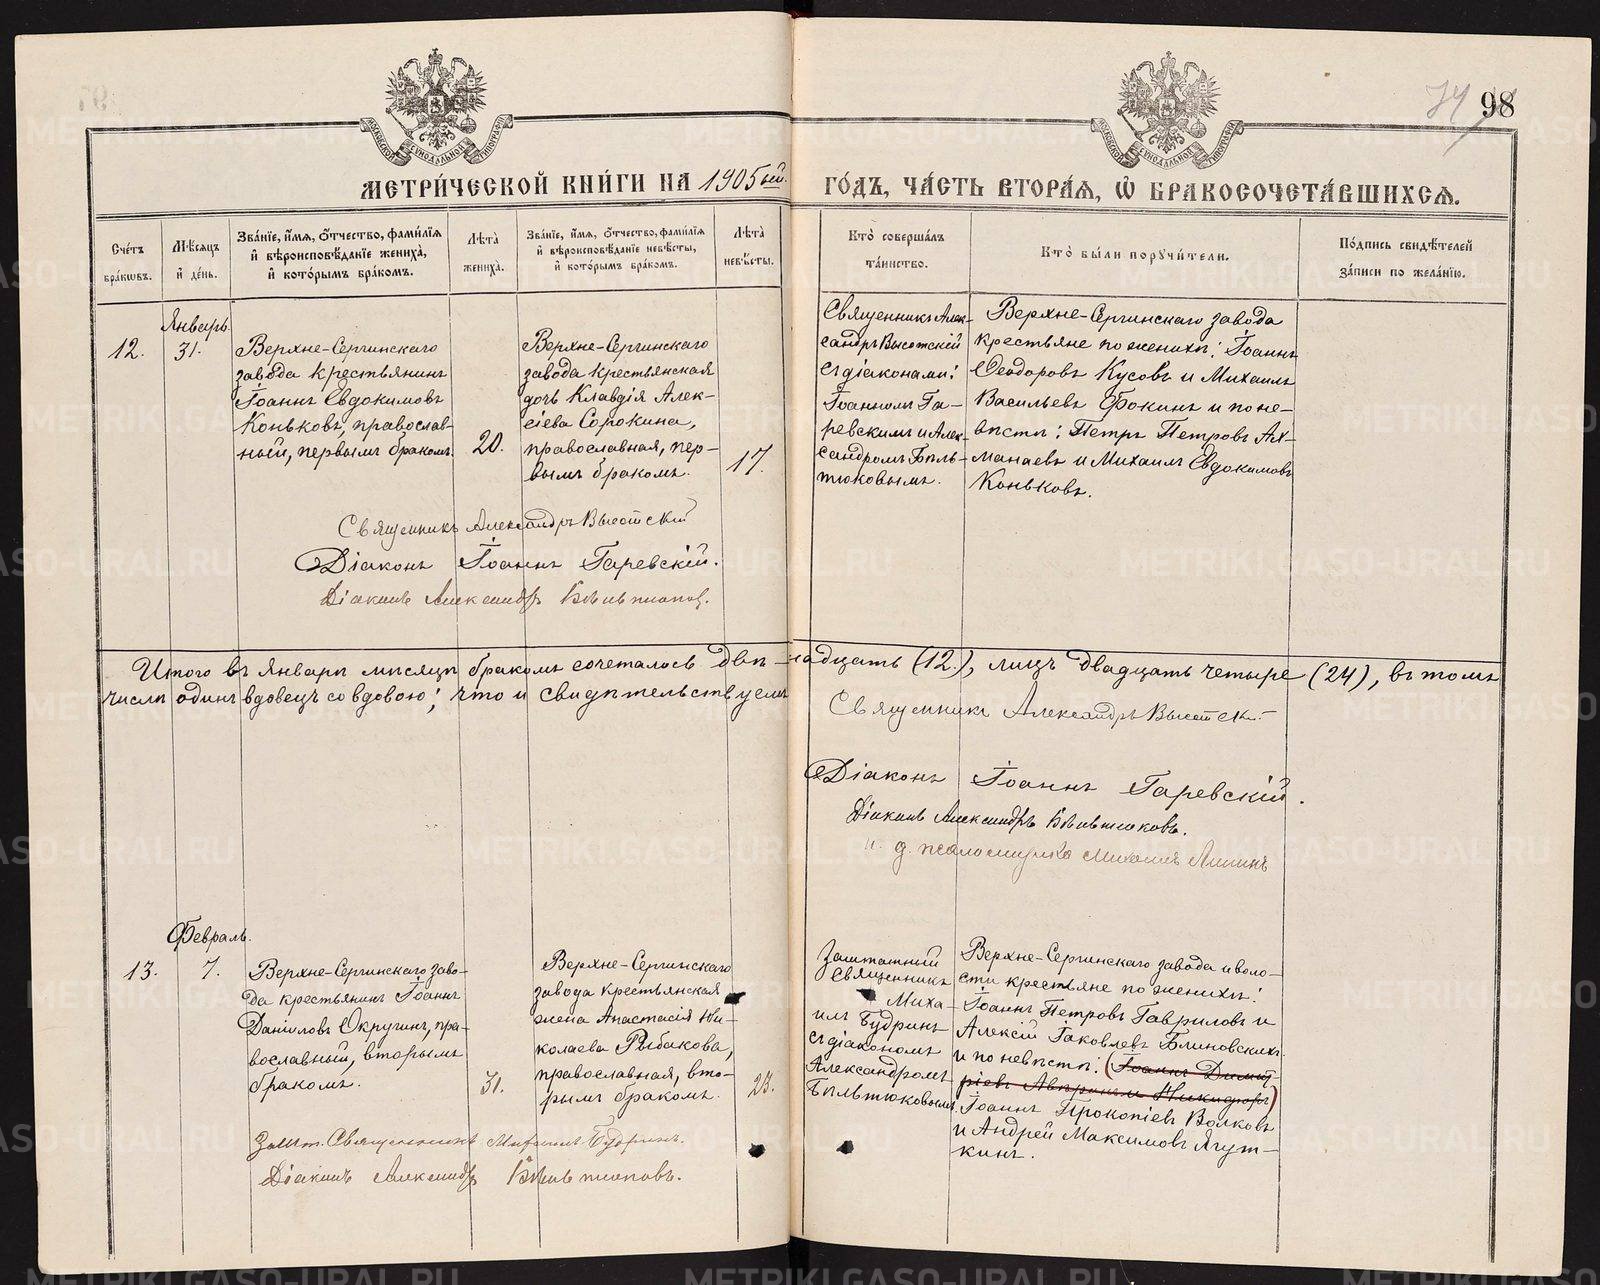 74
98
МОСКОВСКОЙ СѴНОДАЛЬНОЙ ТИПОГРАФІИ
МОСКОВСКОЙ СѴНОДАЛЬНОЙ ТИПОГРАФІИ
МЕТРИ́ЧЕСКОЙ КНИ́ГИ НА 1905ый.
ГО́ДЪ, ЧА́СТЬ ВТОРА́Я, Ѽ БРАКОСОЧЕТА́ВШИХСЯ.
Сче́тъ бра́кѡвъ.
Мѣ́сяцъ и҆ де́нь.
Зва́нїе, и҆́мя, ѻ҆́тчество, фами́лїя и҆ вѣроисповѣ́данїе жениха̀, и҆ кото́рымъ бра́комъ.
Лѣ́та жениха̀.
Зва́нїе, и҆́мя, ѻ҆́тчество, фами́лїя и҆ вѣроисповѣ́данїе невѣ́сты, и҆ кото́рымъ бра́комъ.
Лѣ́та невѣ́сты.
Кто̀ соверша́лъ та́инство.
Кто̀ бы́ли порꙋчи́тели.
По́дпись свидѣ́телей за́писи по жела́нїю.
12.
Январь
31.
Верхне-Сергинскаго
завода крестьянинъ
Іоаннъ Евдокимовъ
Коньковъ, православ-
ный, первымъ бракомъ.
20.
Верхне-Сергинскаго
завода крестьянская
дочь Клавдія Алек-
сіева Сорокина,
православная, пер-
вымъ бракомъ.
17.
Священникъ Алек-
сандръ Высотскій
съ діаконами:
Іоанномъ Га-
ревскимъ и Алек-
сандромъ Бѣль-
тюковымъ.
Верхне-Сергинскаго завода
крестьяне по женихѣ: Іоаннъ
Ѳеодоровъ Кусовъ и Михаилъ
Васильевъ Фокинъ и по не-
вѣстѣ: Петръ Петровъ Ах-
манаевъ и Михаилъ Евдокимовъ
Коньковъ.
Священникъ Александръ Высотскій
Діаконъ Іоаннъ Гаревскій.
Діаконъ Александръ Бѣльтюковъ.
Итого въ Январѣ мѣсяцѣ бракомъ сочеталось двѣ-надцать (12.), лицъ двадцать четыре (24), въ томъ
числѣ одинъ вдовецъ со вдовою; что и свидѣтельствуемъ
Священникъ Александръ Высотскій
Діаконъ Іоаннъ Гаревскій.
Діаконъ Александръ Бѣльтюковъ.
и. д. псаломщика Михаилъ
13.
Февраль.
7.
Верхне-Сергинскаго заво-
да крестьянинъ Іоаннъ
Даніиловъ Округинъ, пра-
вославный, вторымъ
бракомъ.
31.
Верхне-Сергинскаго
завода крестьянская
жена Анастасія Ни-
колаева Рыбакова,
православная, вто-
рымъ бракомъ.
23.
Заштатный
Священникъ
Миха-
илъ Будринъ
съ діакономъ
Александромъ
Бѣльтюковымъ
Верхне-Сергинскаго завода и воло-
сти крестьяне по женихѣ:
Іоаннъ Петровъ Гавриловъ и
Алексій Іаковлевъ Блиновскихъ
и по невѣстѣ: (Іоаннъ Димит
ріевъ и Никифоръ)
Іоаннъ Прокопіевъ Волковъ
и Андрей Максимовъ Ягут-
кинъ.
Зашт. Священникъ Михаилъ Будринъ.
Діаконъ Александръ Бѣльтюковъ.
METRIKI.GASO-URAL.RU